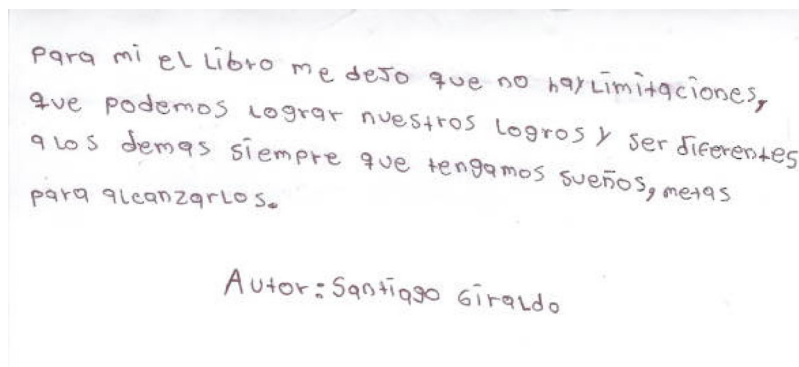 para mi el Libro me dejo que no hay Limitaciones,
que podemos Lograr nuestros Logros y ser diferentes
a Los demas siempre que tengamos sueños, metas
para alcanzarLos.
Autor: Santiago GiraLdo